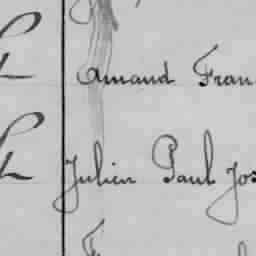 Amand Fran
Julien Paul Jos